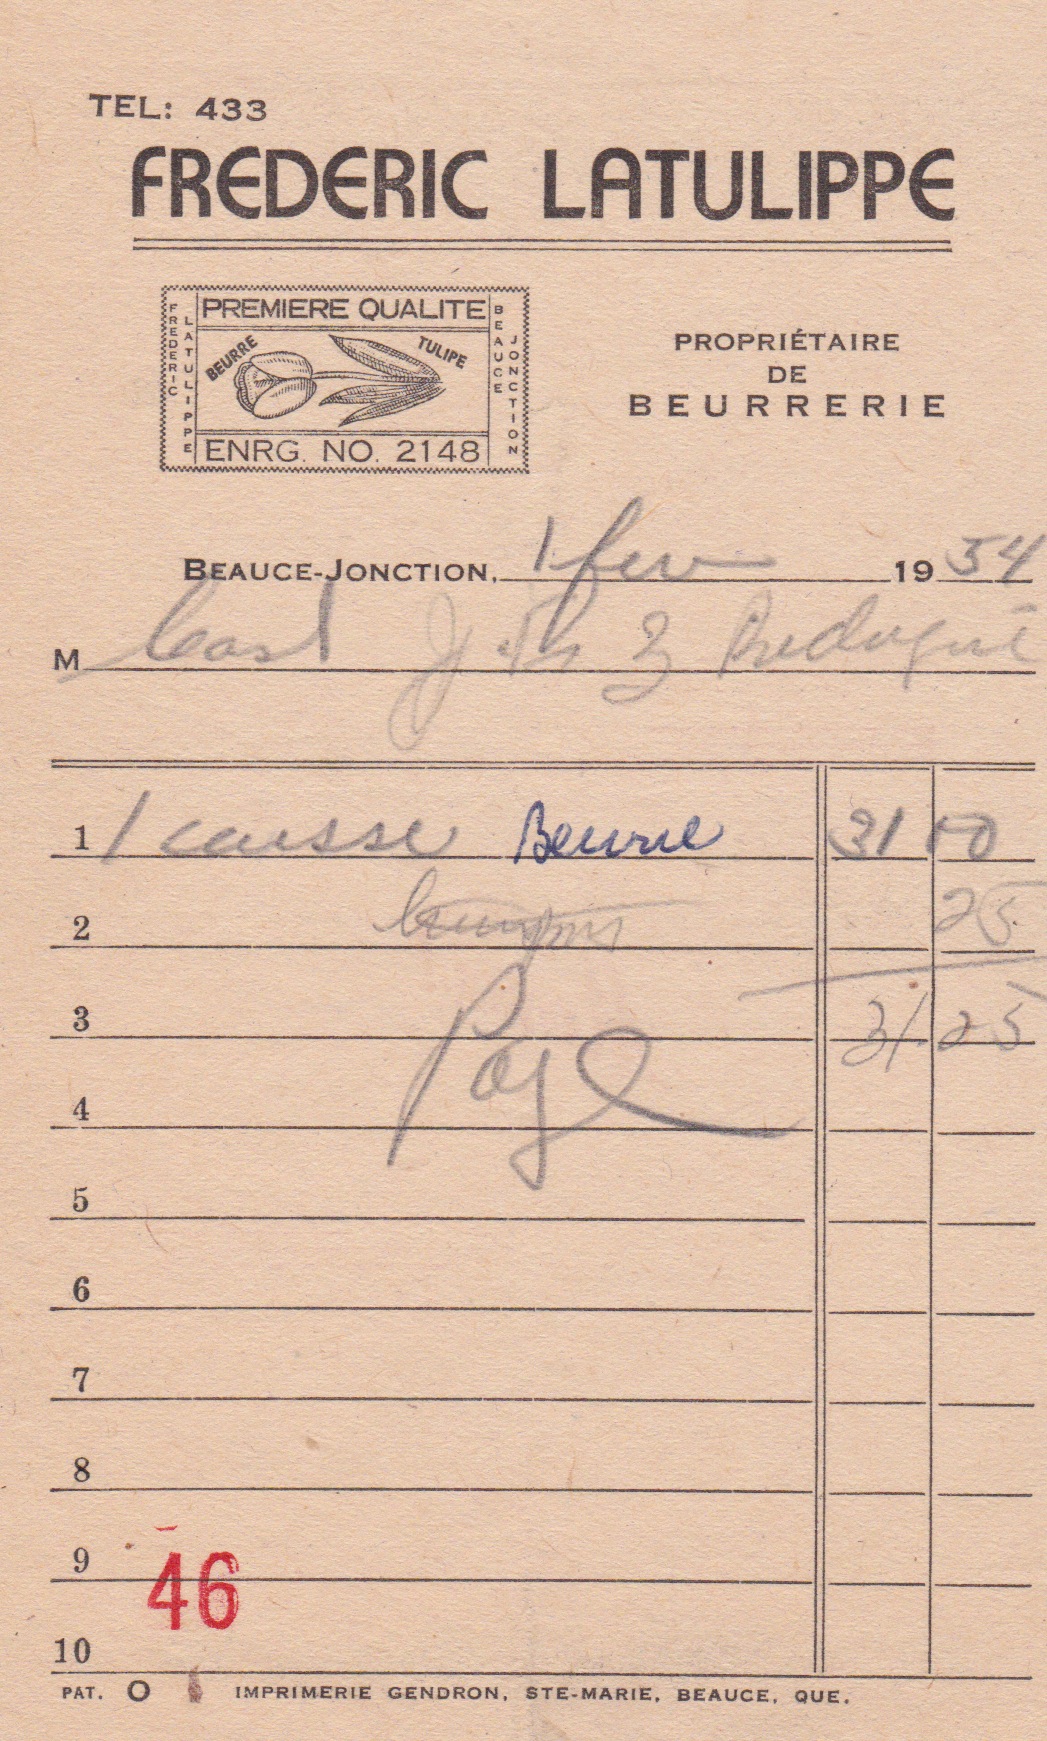 TEL: 433
FREDERIC LATULIPPE
FREDERIC LATULIPPE
PREMIERE QUALITE
BEURRE TULIPE
ENRG. NO. 2148
BEAUCE JONCTION
PROPRIÉTAIRE
DE
BEURRERIE
BEAUCE-JONCTION, 1 fev 1954
M
1 1 caisse Beurre 31 00
2 25
3 31.25
4
5
6
7
8
9
46
10
PAT. O IMPRIMERIE GENDRON, STE-MARIE, BEAUCE, QUE.